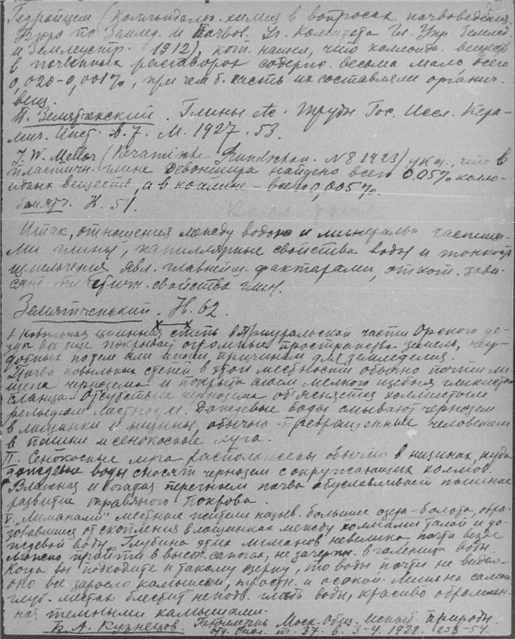 Гедройцем (Коллоидальн. химия в вопросах почвоведения.
Бюро по Землед. и Почвов. Уч. Комитета Гл. Упр. Землед.
и Землеустр. 1912), кот. нашел, что коллоидн. веществ
в почвенных растворах содерж. весьма мало, всего
0,020-0,001%, причем б. часть их составляли органич.
вещ.
Земятченский. Глины etc. Труды Гос. Иссл. Кера-
мич. Инст. в. 7. М. 1927. 53.
J. W. Mellor (Keramische Rundschau. N 8 1923) указ., что в
пластичн. глине Девоншира найдено всего 0,05% колло-
идных веществ, а в каолине - всего 0,005%.
Земятч. II. 51.
Итак, отношения между водою и минеральн. частица-
ми глины, капиллярные свойства воды и тонкость
измельчения явл. главнейш. факторами, от кот. зави-
сят свойства глин.
Земятченский. 62.
I. Ковыльная целинная степь в Приуральской части Орского уе-
зда все еще покрывает огромные пространства земель, неу-
добных по тем или иным причинам для земледелия.
Почва ковыльных степей в этой местности обычно почти ли-
шена чернозема и покрыта слоем мелкого щебня глинистого
сланца. Отсутствие чернозема объясняется холмистым
рельефом местности. Дождевые воды смывают чернозем
в лощинки и низины, обычно превращенные человеком
в пашни и сенокосные луга.
II. Сенокосные луга расположены обычно в низинах, куда
дождевые воды сносят чернозем с окружающих холмов.
Влажная и богатая перегноем почва обуславливает пышное
развитие травяного покрова.
"Лиманами" местные жители назыв. большие озера-болота, обра-
зовавшиеся от скопления в лощинках между холмами талой и до-
ждевой воды. Глубина этих лиманов невелика почти везде
можно пройти в высок. сапогах, не зачерпн. в голенища воды
Когда вы подходите к такому озерку, то воды почти не видно
оно все заросло камышом, тростн. и осокой. Лишь на самых
глуб. местах блестит гладь воды, красиво обрамлен-
ная темными камышами.
Б. А. Кузнецов. Моск. Общ. Испыт. Природы
т. 37. в. 3-4. 1928.